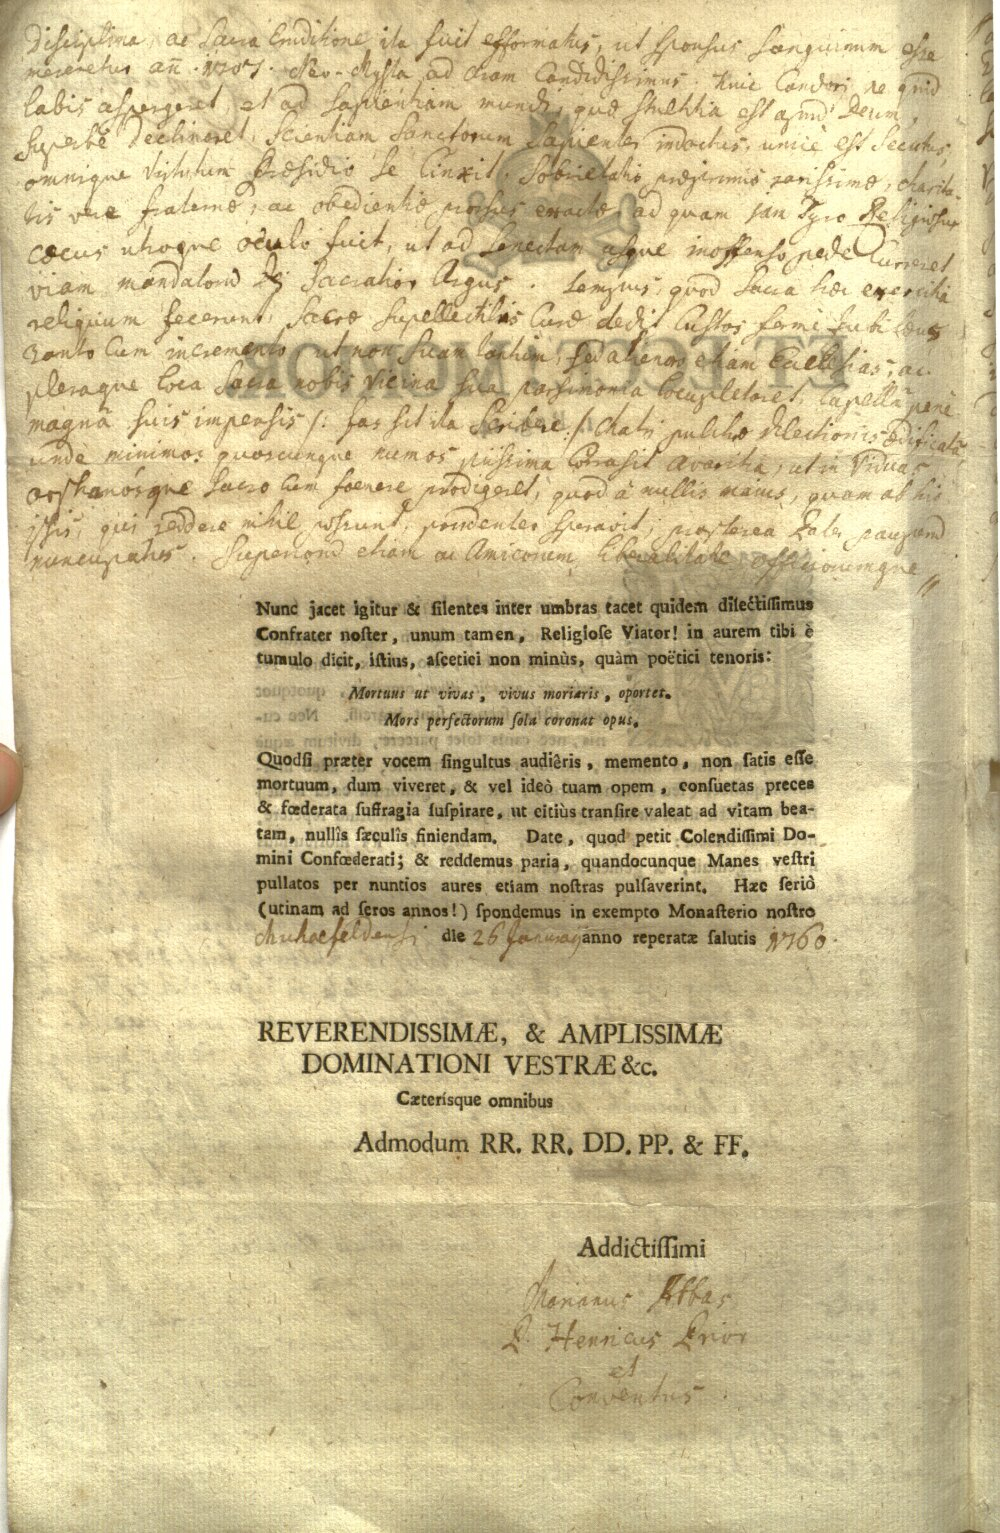 Disciplina, ac Sacra Eruditione ita fuit efformatus, ut sponsus sanguinum esse
mereretur añ. 1707. Neo-Mysta, ad aram Candidissimus. Huic Candori, ne quid
labis aspergeret, et ad sapientiam mundi, quæ stultitia est apud Deum,
superbè declineret, Scientiam Sanctorum Sapienter indoctus, unicè est Secutus,
omnique Virtutum Præsidio se Cinxit, Sobrietatis præprimis rarissimæ, charita-
tis veræ fraternæ, ac obedientiæ prorsus exactæ, ad quam jam Tyro Religiosus
cæcus utroque oculo fuit, ut ad Senectam usque inoffenso pede Curreret
viam mandatorũ Dei Sacratior Argus. Tempus, quod Sacra hæc exercitia
reliquum fecerunt, Sacræ Supellectilis Curæ dedit Custos fermè
tanto Cum incremento, ut non Suam tantùm, sed alienas etiam Ecclesias, ac
pleraque loca Sacra nobis Vicina sua parsimonia locupletaret, Capellã penè
magnã suis impensis /: fas sit ita Scribere :/ Matri pulchræ dilectionis ædificatâ,
undè minimos quoscunque numos piissima Corrasit avaritia, ut in Viduas
orphanósque Sacro cum fœnere prodigeret, quod à nullis majus, quam ab his
ipsis, qui reddere nihil possunt, prudenter speravit, propterea Pater pauperũ
nuncupatus. Superiorũ etiam ac Amicorum liberalitate officiorumque //
Nunc jacet igitur & silentes inter umbras tacet quidem dilectissimus
Confrater noster, unum tamen, Religiose Viator! in aurem tibi è
tumulo dicit, istius, ascetici non minùs, quàm poëtici tenoris:
Mortuus ut vivas, vivus moriaris, oportet.
Mors perfectorum sola coronat opus.
Quodsi præter vocem singultus audiêris, memento, non satis esse
mortuum, dum viveret, & vel ideò tuam opem, consuetas preces
& fœderata suffragia suspirare, ut citiùs transire valeat ad vitam bea-
tam, nullîs sæculîs finiendam. Date, quod petit Colendissimi Do-
mini Confœderati; & reddemus paria, quandocunque Manes vestri
pullatos per nuntios aures etiam nostras pulsaverint. Hæc seriò
(utinam ad seros annos!) spondemus in exempto Monasterio nostro
die 26 January anno reperatæ salutis 1760.
REVERENDISSIMÆ, & AMPLISSIMÆ
DOMINATIONI VESTRÆ &c.
Cæterísque omnibus
Admodum RR. RR. DD. PP. & FF.
Addictissimi
Marianus Abbas
P. Henricus Prior
et
Conventus.